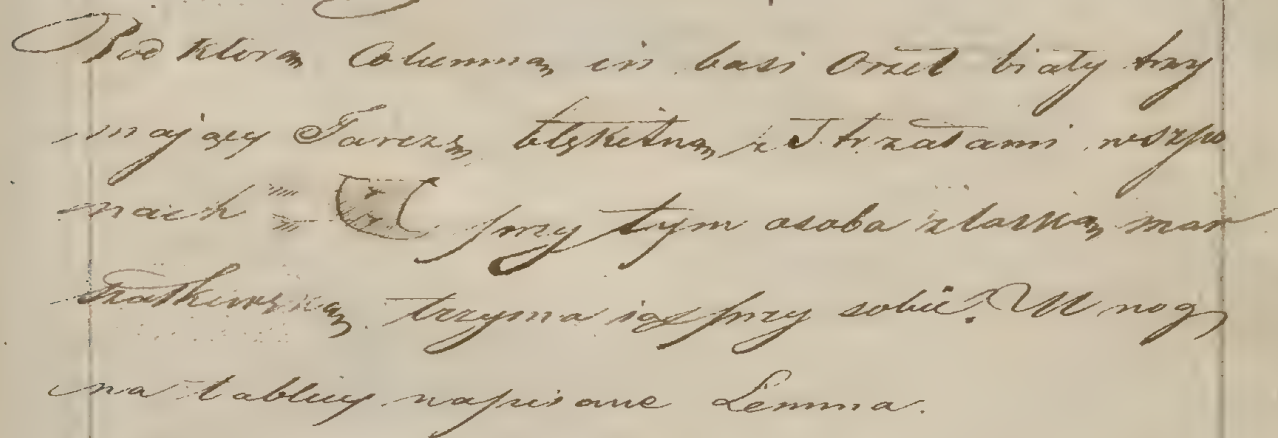 Pod ktorą Columną in basi Orzeł biały trzy
mający Tarczą błękitną z Strzałami w szpo
nach przy tym osoba z laską mar
szałkowską trzyma się przy sobie. U nog
na tablicy napisane Lemma.